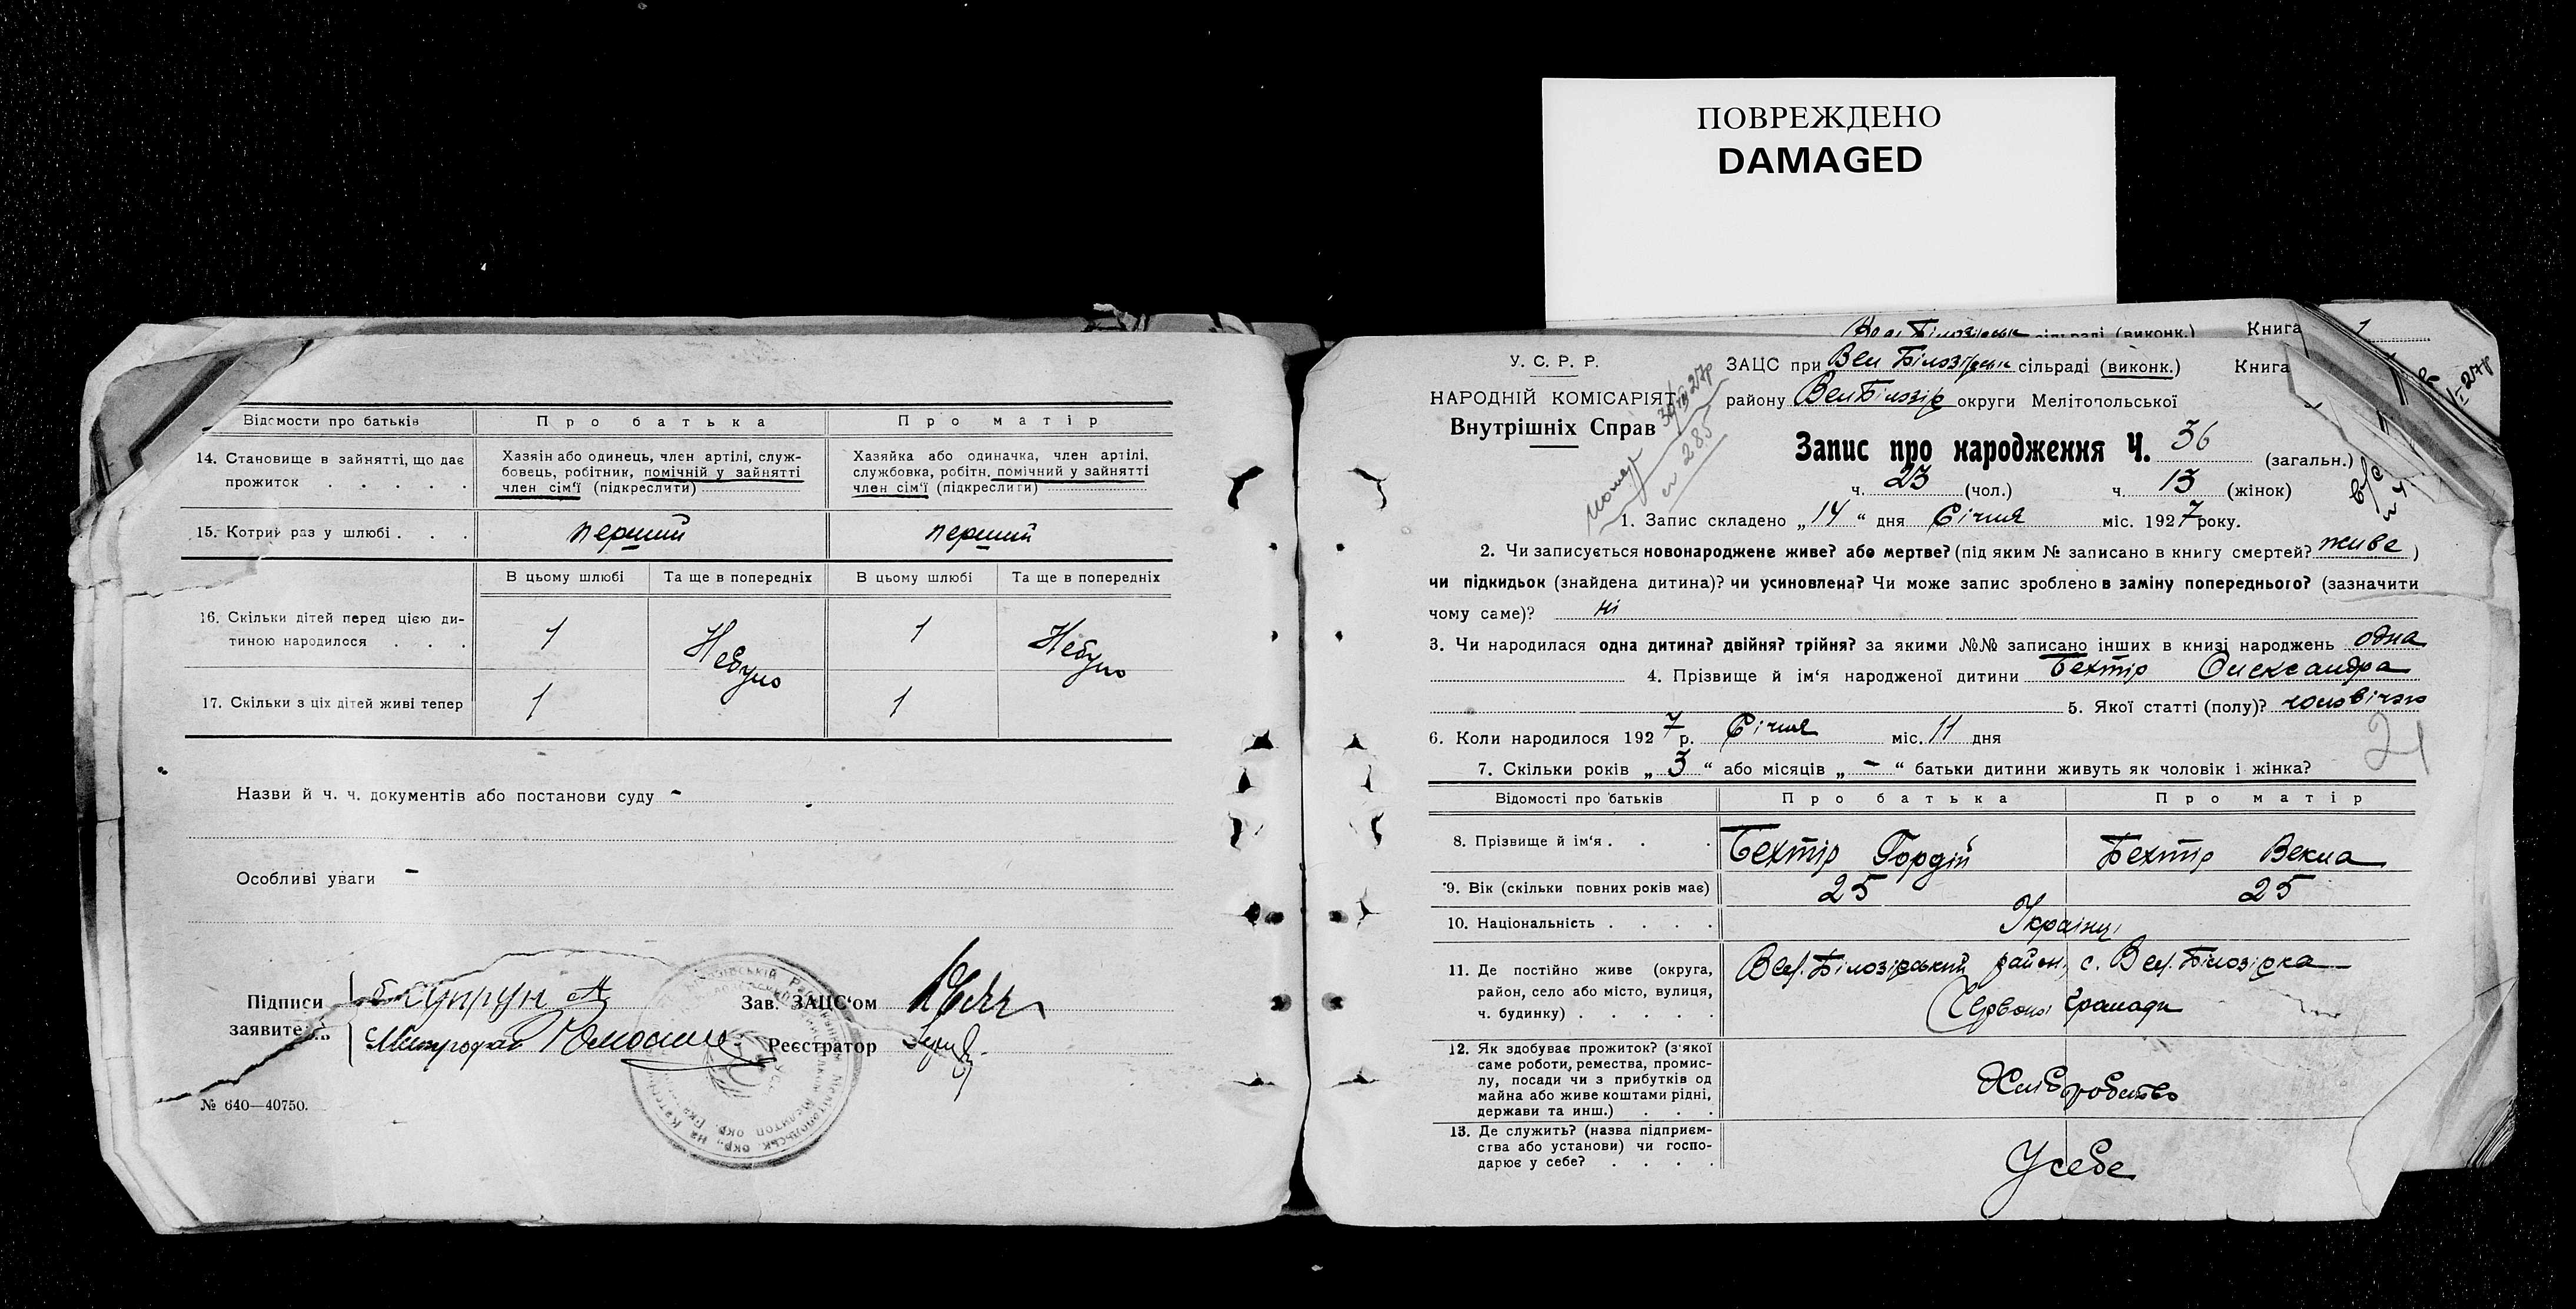 ПОВРЕЖДЕНО
DAMAGED
Відомости про батьків
Про батька
Про матір
14. Становище в зайнятті, що дає
прожиток . . . . .
Хазяін або одинець, член артілі, служ-
бовець, робітник, помічній у зайнятті
член сім'ї (підкреслити)
Хазяйка або одиначка, член артілі,
службовка, робітн. помічний у зайнятті
член сім'ї (підкреслити)
15. Котрий раз у шлюбі . . .
перший
перший
В цьому шлюбі
Та ще в попередніх
В цьому шлюбі
Та ще в попередніх
16. Скільки дітей перед цією ди-
тиною народилося . . .
1
Небуло
1
Небуло
17. Скільки з ціх дітей живі тепер
1
1
Назви й ч. ч. документів або постанови суду -
Особливі уваги -
Підписи
заявите
Супрун А
Зав. ЗАЦС'ом
Реєстратор
№ 640—40750.
сільраді (виконк.) Книга 1
У. С. Р. Р.
НАРОДНІЙ КОМІСАРІЯТ
Внутрішніх Справ
285
ЗАЦС при Вел Білозірськ сільраді (виконк.) Книга
району Вел Білозір округи Мелітопольської
Запис про народження Ч. 36 (загальн.)
ч. 23 (чол.) ч. 13 (жінок)
1. Запис складено „14“ дня Січня міс. 1927 року.
2. Чи записується новонароджене живе? або мертве? (під яким № записано в книгу смертей? живе )
чи підкидьок (знайдена дитина)? чи усиновлена? Чи може запис зроблено в заміну попереднього? (зазначити
чому саме)? ні
3. Чи народилася одна дитина? двійня? трійня? за якими №№ записано інших в книзі народжень одна
4. Прізвище й ім'я народженої дитини Бехтір Олександра
5. Якої статті (полу)? чоловічого
21
6. Коли народилося 1927 р. Січня міс. 11 дня
7. Скільки років „3“ або місяців „-“ батьки дитини живуть як чоловік і жінка?
Відомості про батьків
Про батька
Про матір
8. Прізвище й ім'я . . .
Бехтір Гордій
Бехтір Векла
9. Вік (скільки повних років має)
25
25
10. Національність . . . .
Українці
11. Де постійно живе (округа,
район, село або місто, вулиця,
ч. будинку) . . . . .
Вел. Білозірський район, с. Вел. Білозірка
Червоної Громади
12. Як здобуває прожиток? (з'якої
саме роботи, ремества, промис-
лу, посади чи з прибутків од
майна або живе коштами рідні,
держави та инш.) . . .
Хліборобство
13. Де служить? (назва підприєм-
ства або установи) чи госпо-
дарює у себе? . . . .
У себе